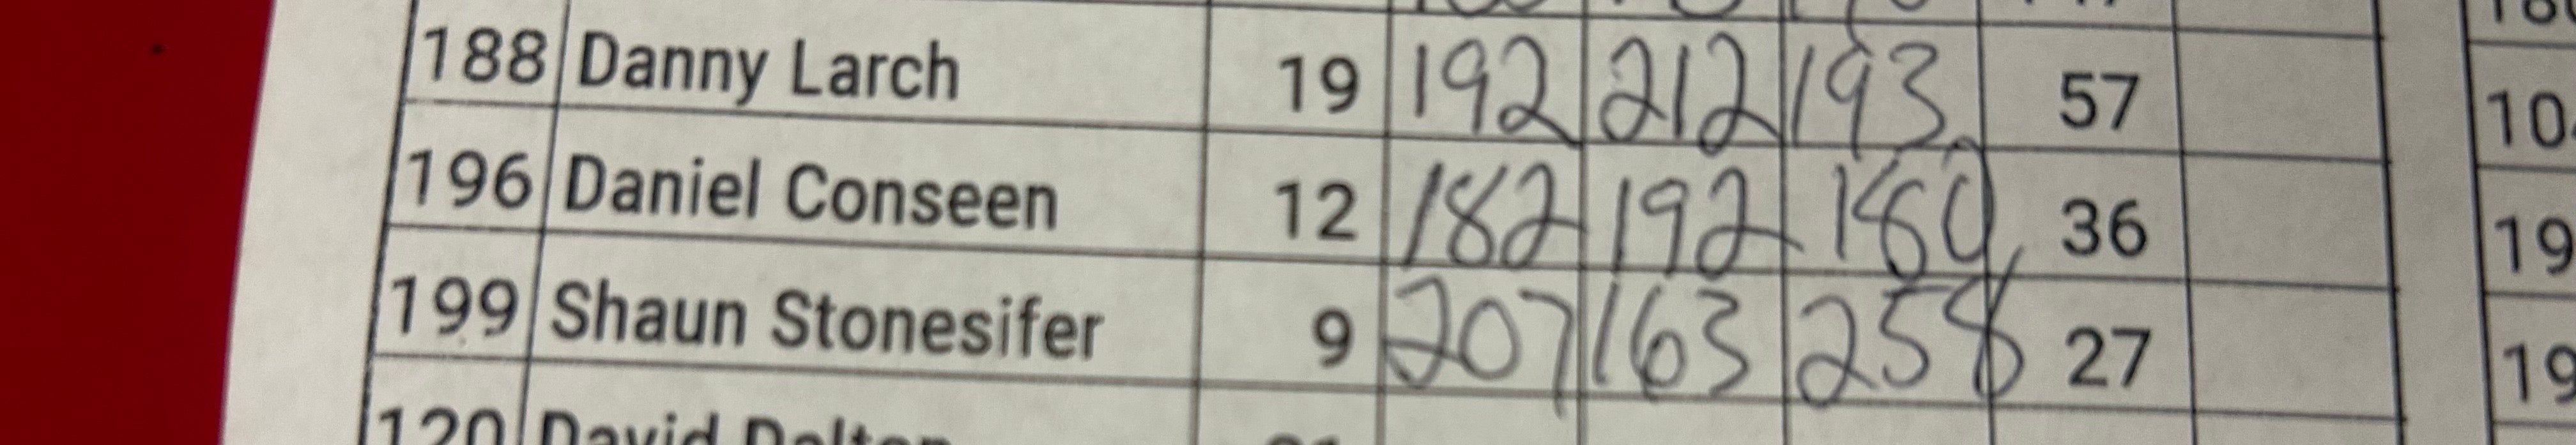 188 Danny Larch 19 192 212 193 57
10
196 Daniel Conseen 12 182 192 180 36
19
199 Shaun Stonesifer 9 207 163 258 27
19
120 David Dalton